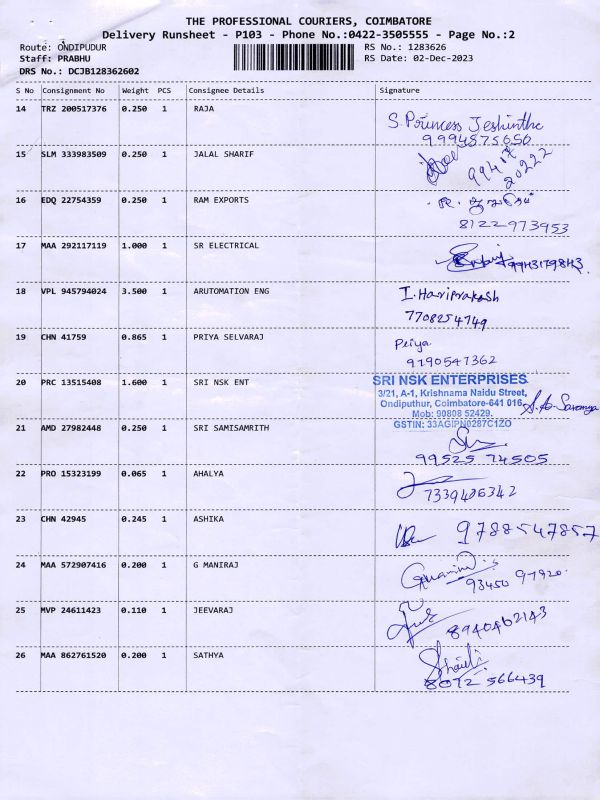 THE PROFESSIONAL COURIERS, COIMBATORE
Delivery Runsheet - P103 - Phone No.:0422-3505555 - Page No.:2
Route: ONDIPUDUR RS No.: 1283626
Staff: PRABHU RS Date: 02-Dec-2023
DRS No.: DCJB128362602
S No Consignment No Weight PCS Consignee Details Signature
14 TRZ 200517376 0.250 1 RAJA
S. Princess Jeshintha
9994575656
15 SLM 333983509 0.250 1 JALAL SHARIF
20222
16 EDQ 22754359 0.250 1 RAM EXPORTS
8122973953
17 MAA 292117119 1.000 1 SR ELECTRICAL
18 VPL 945794024 3.500 1 ARUTOMATION ENG I. Hariprakash
7708254749
19 CHN 41759 0.865 1 PRIYA SELVARAJ Priya
9790547362
20 PRC 13515408 1.600 1 SRI NSK ENT SRI NSK ENTERPRISES
3/21, A-1, Krishnama Naidu Street,
Ondiputhur, Coimbatore-641 016.
Mob: 90808 52429.
GSTIN: 33AGIPN0287C1ZO
21 AMD 27982448 0.250 1 SRI SAMISAMRITH
99525 74505
22 PRO 15323199 0.065 1 AHALYA
7339406342
23 CHN 42945 0.245 1 ASHIKA 9788547857
24 MAA 572907416 0.200 1 G MANIRAJ
93450 97920
25 MVP 24611423 0.110 1 JEEVARAJ
8940462143
26 MAA 862761520 0.200 1 SATHYA
8072 566439